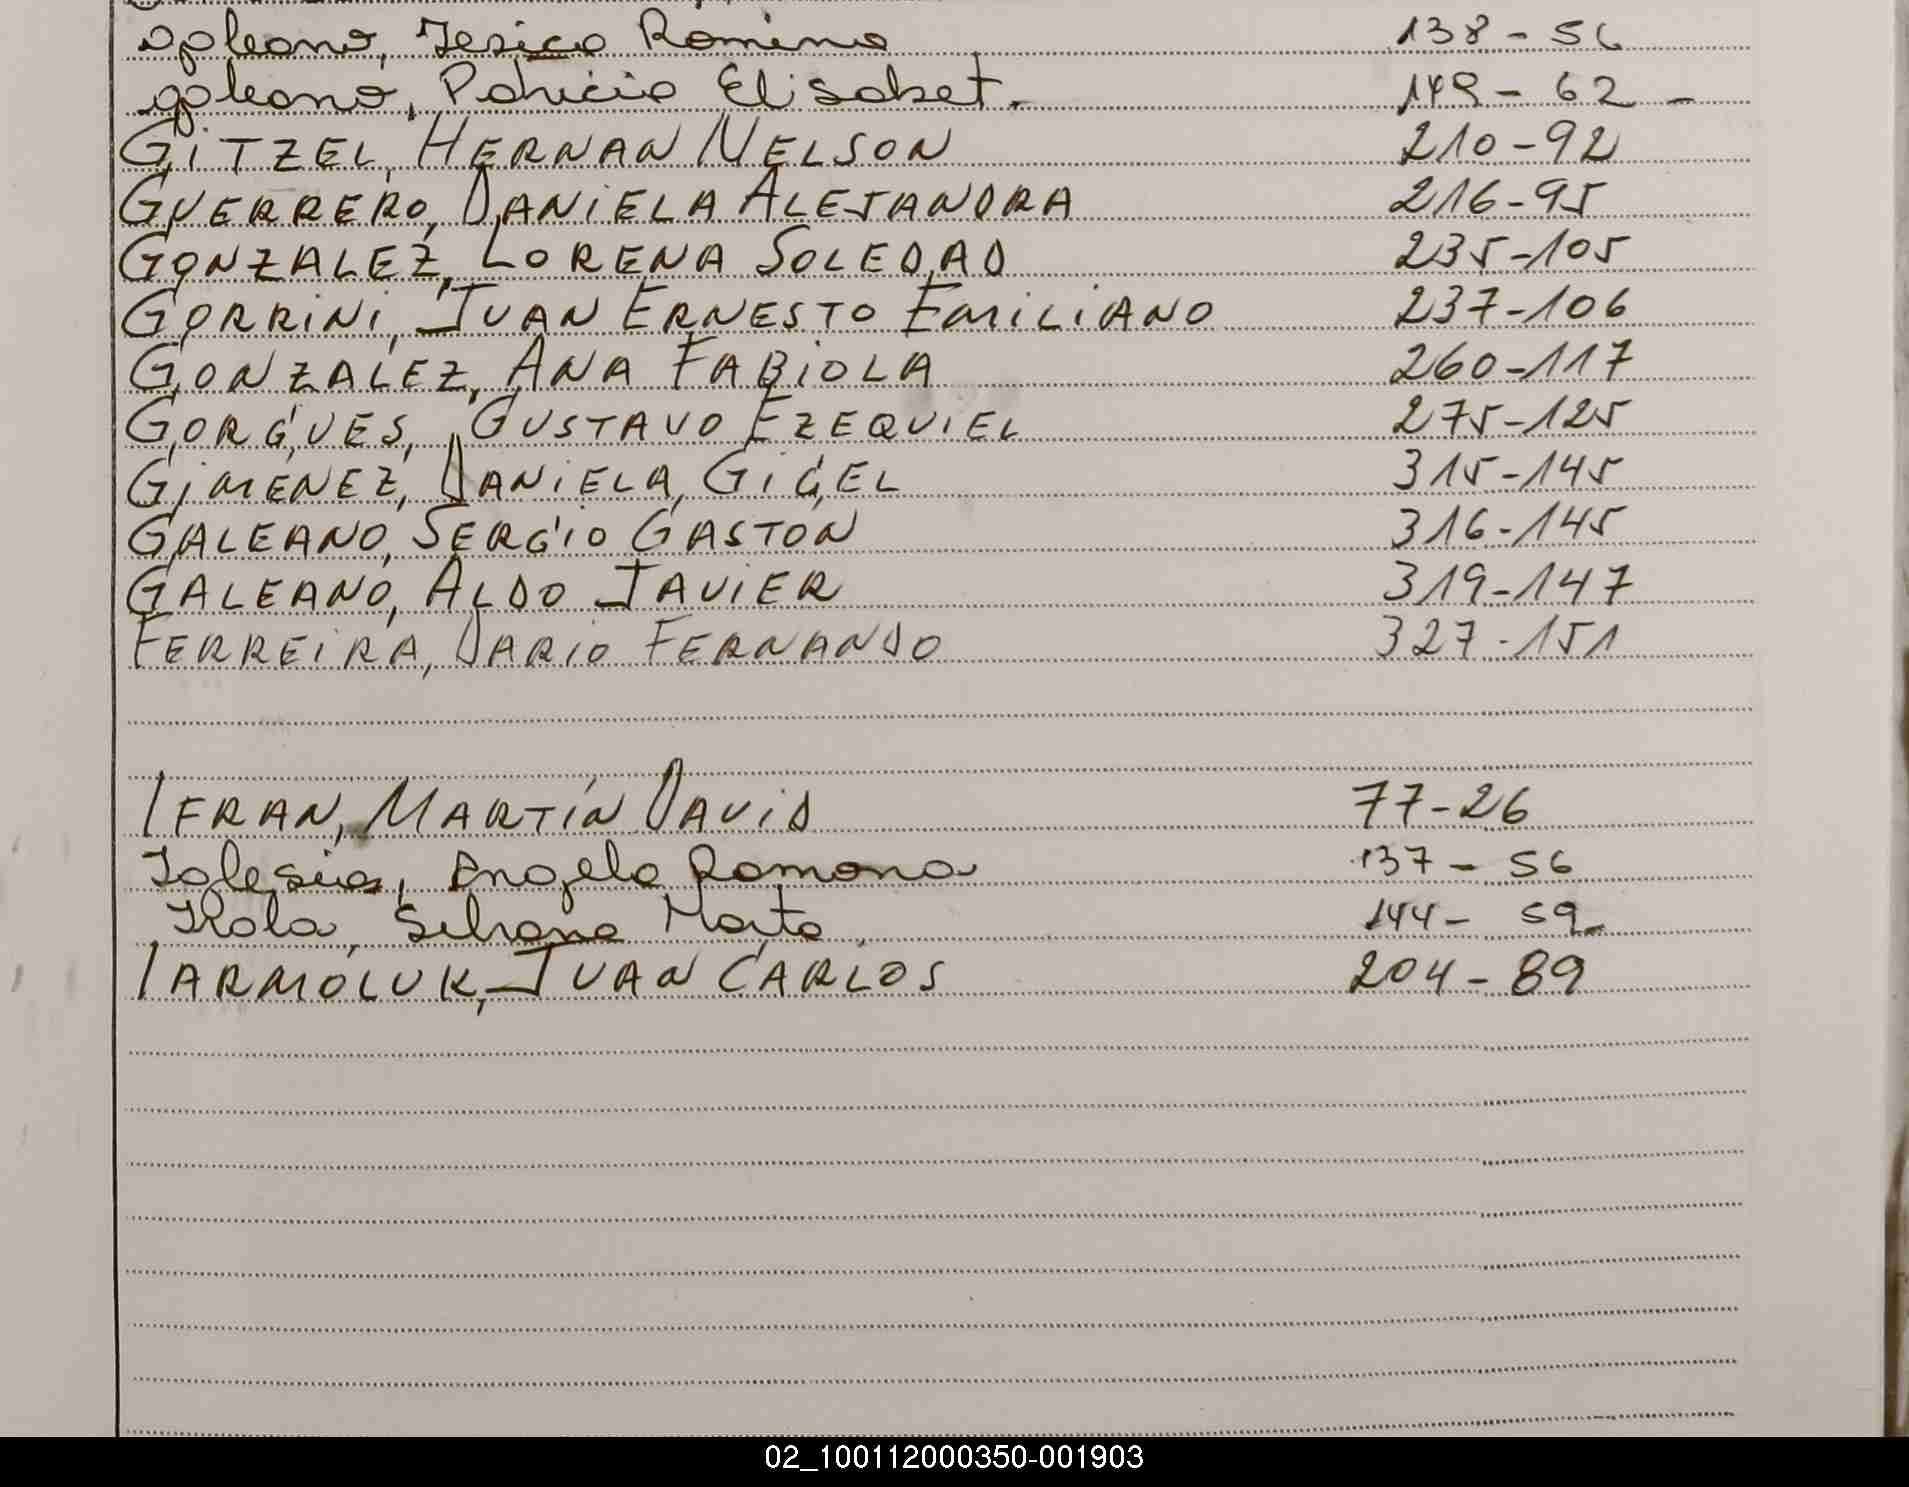 galeano, Jesica Romina 138 - 56
galeano, Patricia Elisabet. 149 - 62 -
GITZEL, HERNAN NELSON 210-92
GUERRERO, DANIELA ALEJANDRA 216-95
GONZALEZ, LORENA SOLEDAD 235-105
GORRINI, JUAN ERNESTO EMILIANO 237-106
GONZALEZ, ANA FABIOLA 260-117
GORGUES, GUSTAVO EZEQUIEL 275-125
GIMENEZ, DANIELA GIGEL 315-145
GALEANO, SERGIO GASTON 316-145
GALEANO, ALDO JAVIER 319-147
FERREIRA, DARIO FERNANDO 327-151
IFRAN, MARTÍN DAVID 77-26
Iglesias, Angela Ramona 137 - 56
Silvana Marta 144 - 59
IARMOLUK, JUAN CARLOS 204-89
02_100112000350-001903